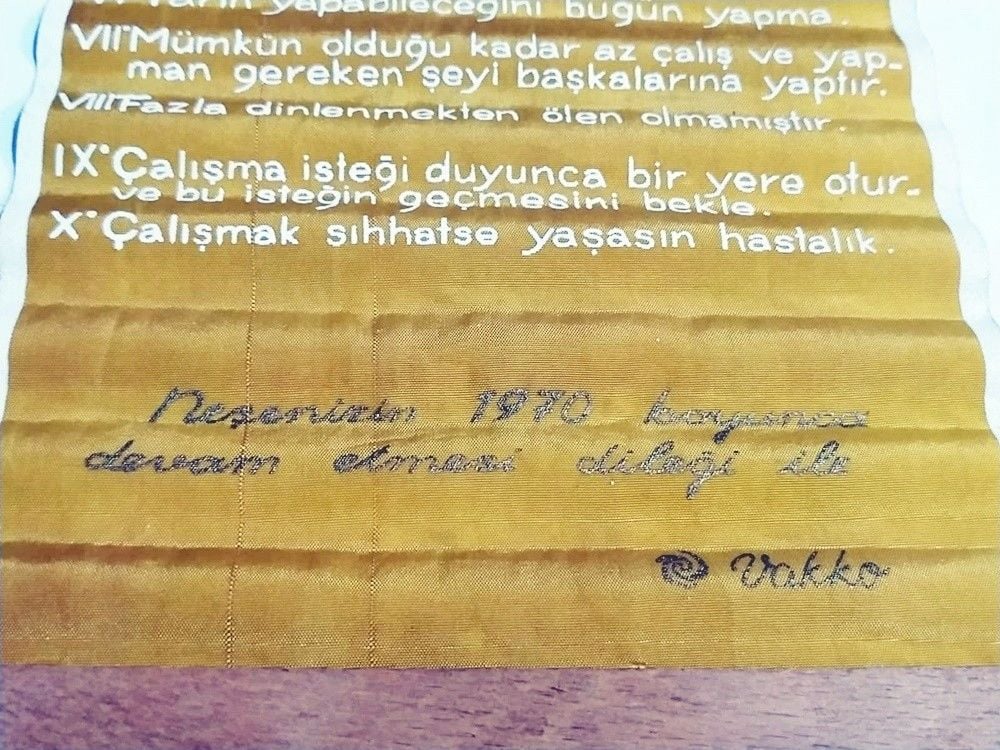 VI° Yarın yapabileceğini bugün yapma.
VII° Mümkün olduğu kadar az çalış ve yap-
man gereken şeyi başkalarına yaptır.
VIII° Fazla dinlenmekten ölen olmamıştır.
IX° Çalışma isteği duyunca bir yere otur-
ve bu isteğin geçmesini bekle.
X° Çalışmak sıhhatse yaşasın hastalık.
Neşenizin 1970 boyunca
devam etmesi dileği ile
Vakko